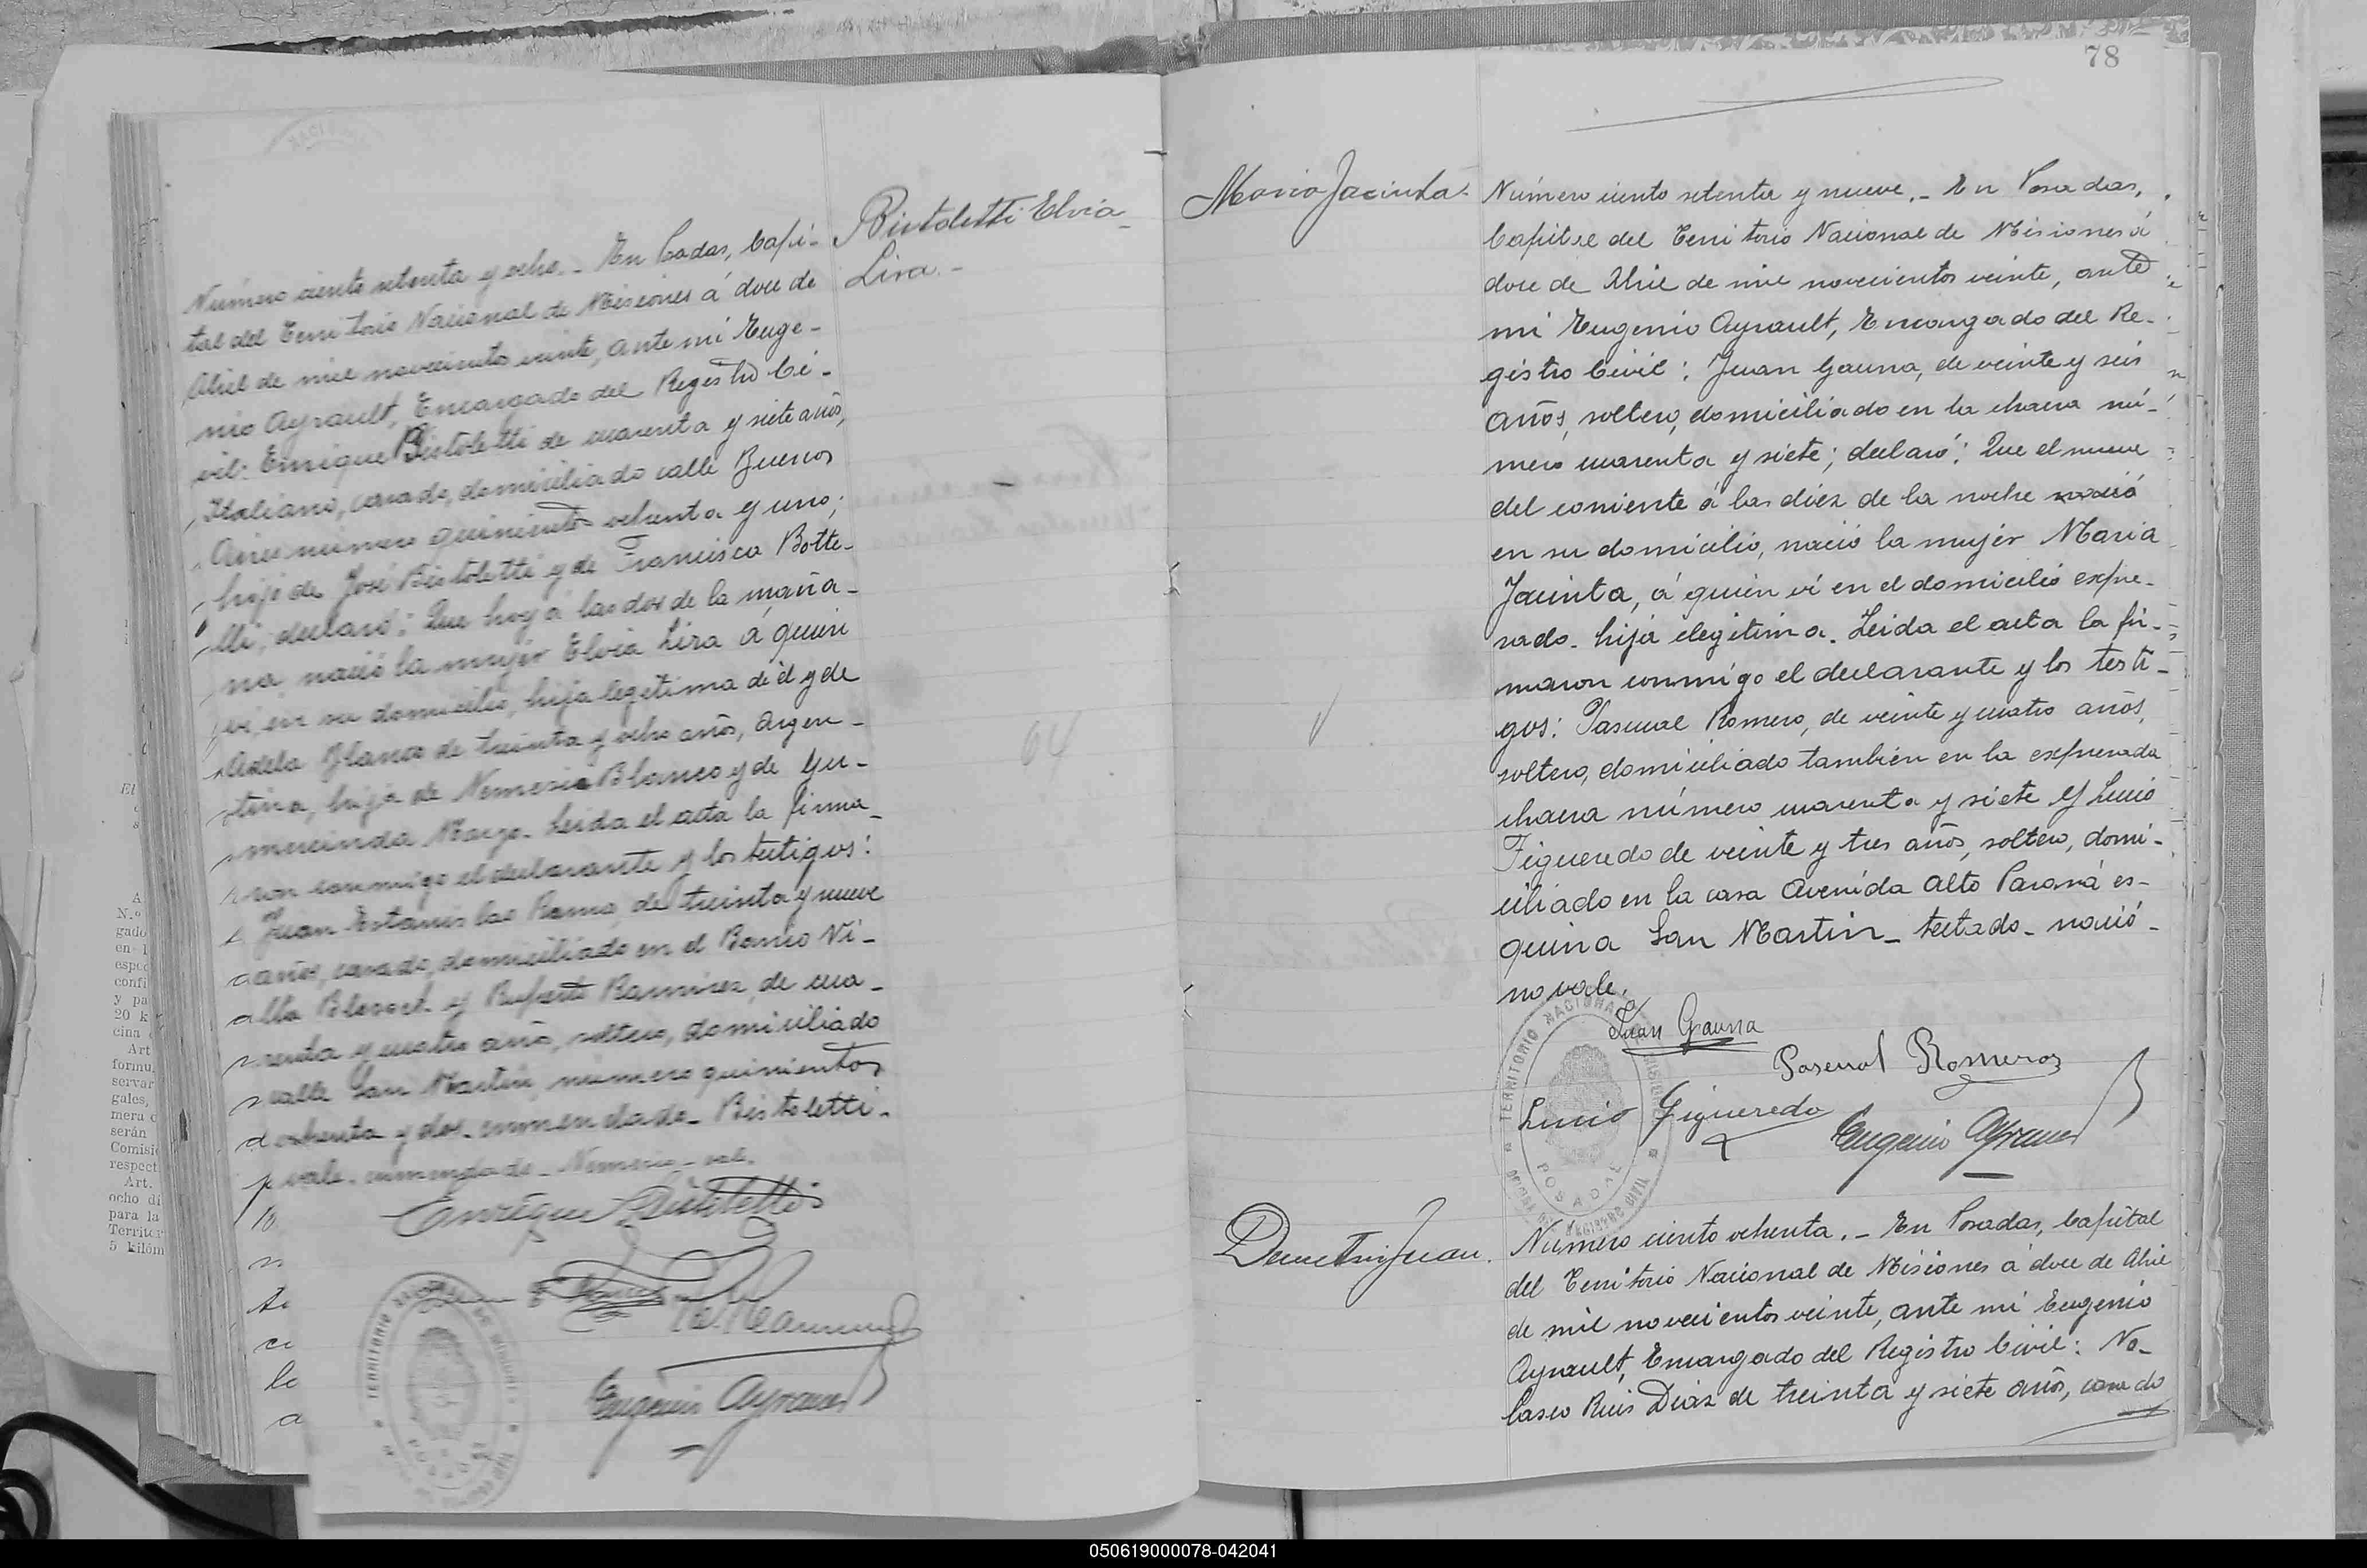 Bistoletti Elvia
Lira.-
Número ciento setenta y ocho.- En Posadas, Capi-
tal del Territorio Nacional de Misiones á doce de
Abril de mil novecientos veinte, ante mi Euge-
nio Ayrault, Encargado del Registro Ci-
vil: Enrique Bistoletti de cuarenta y siete años,
Italiano, casado, domiciliado calle Buenos
Aires número quinientos ochenta y uno;
hijo de José Bistoletti y de Francisca Botte-
lli; declaró: Que hoy á las dos de la maña-
na nació la mujer Elvia Lira á quien
ví en su domicilio, hija legítima de él y de
Adela Blanco de treinta y ocho años, Argen-
tina, hija de Nemesio Blanco y de Gu-
mercinda Marzo. Leida el acta la firma-
ron conmigo el declarante y los testigos:
Juan Estanislao Roma, de treinta y nueve
años, casado, domiciliado en el Barrio Vi-
lla Blosset y Ruperto Ramirez, de cua-
renta y cuatro años, soltero, domiciliado
calle San Martin, número quinientos
ochenta y dos. enmendado- Bistoletti-
vale. enmendado- Nemesio- vale.
Enrique Bistoletti
R. Ramirez
Eugenio Ayrault
TERRITORIO NACIONAL DE MISIONES
POSADAS
64
78
Maria Jacinta.
Número ciento setenta y nueve.- En Posadas,
Capital del Territorio Nacional de Misiones á
doce de Abril de mil novecientos veinte, ante
mi Eugenio Ayrault, Encargado del Re-
gistro Civil: Juan Gauna, de veinte y seis
años, soltero, domiciliado en la chacra nú-
mero cuarenta y siete; declaró: Que el nueve
del corriente á las diez de la noche nació
en su domicilio, nació la mujer Maria
Jacinta, á quien ví en el domicilio expre-
sado. hija elegitima. Leida el acta la fir-
maron conmigo el declarante y los testi-
gos: Pascual Romero, de veinte y cuatro años,
soltero, domiciliado también en la expresada
chacra número cuarenta y siete y Lucio
Figueredo de veinte y tres años, soltero, domi-
ciliado en la casa Avenida Alto Paraná es-
quina San Martin- testado- nació-
no vale.
Juan Gauna
Pascual Romero
Lucio Figueredo
Eugenio Ayrault
TERRITORIO NACIONAL DE MISIONES
OFICINA DEL REGISTRO CIVIL
POSADAS
Demetrio Juan.
Número ciento ochenta.- En Posadas, Capital
del Territorio Nacional de Misiones á doce de Abril
de mil novecientos veinte, ante mi Eugenio
Ayrault, Encargado del Registro Civil: No-
lasco Ruis Diaz de treinta y siete años, casado
050619000078-042041